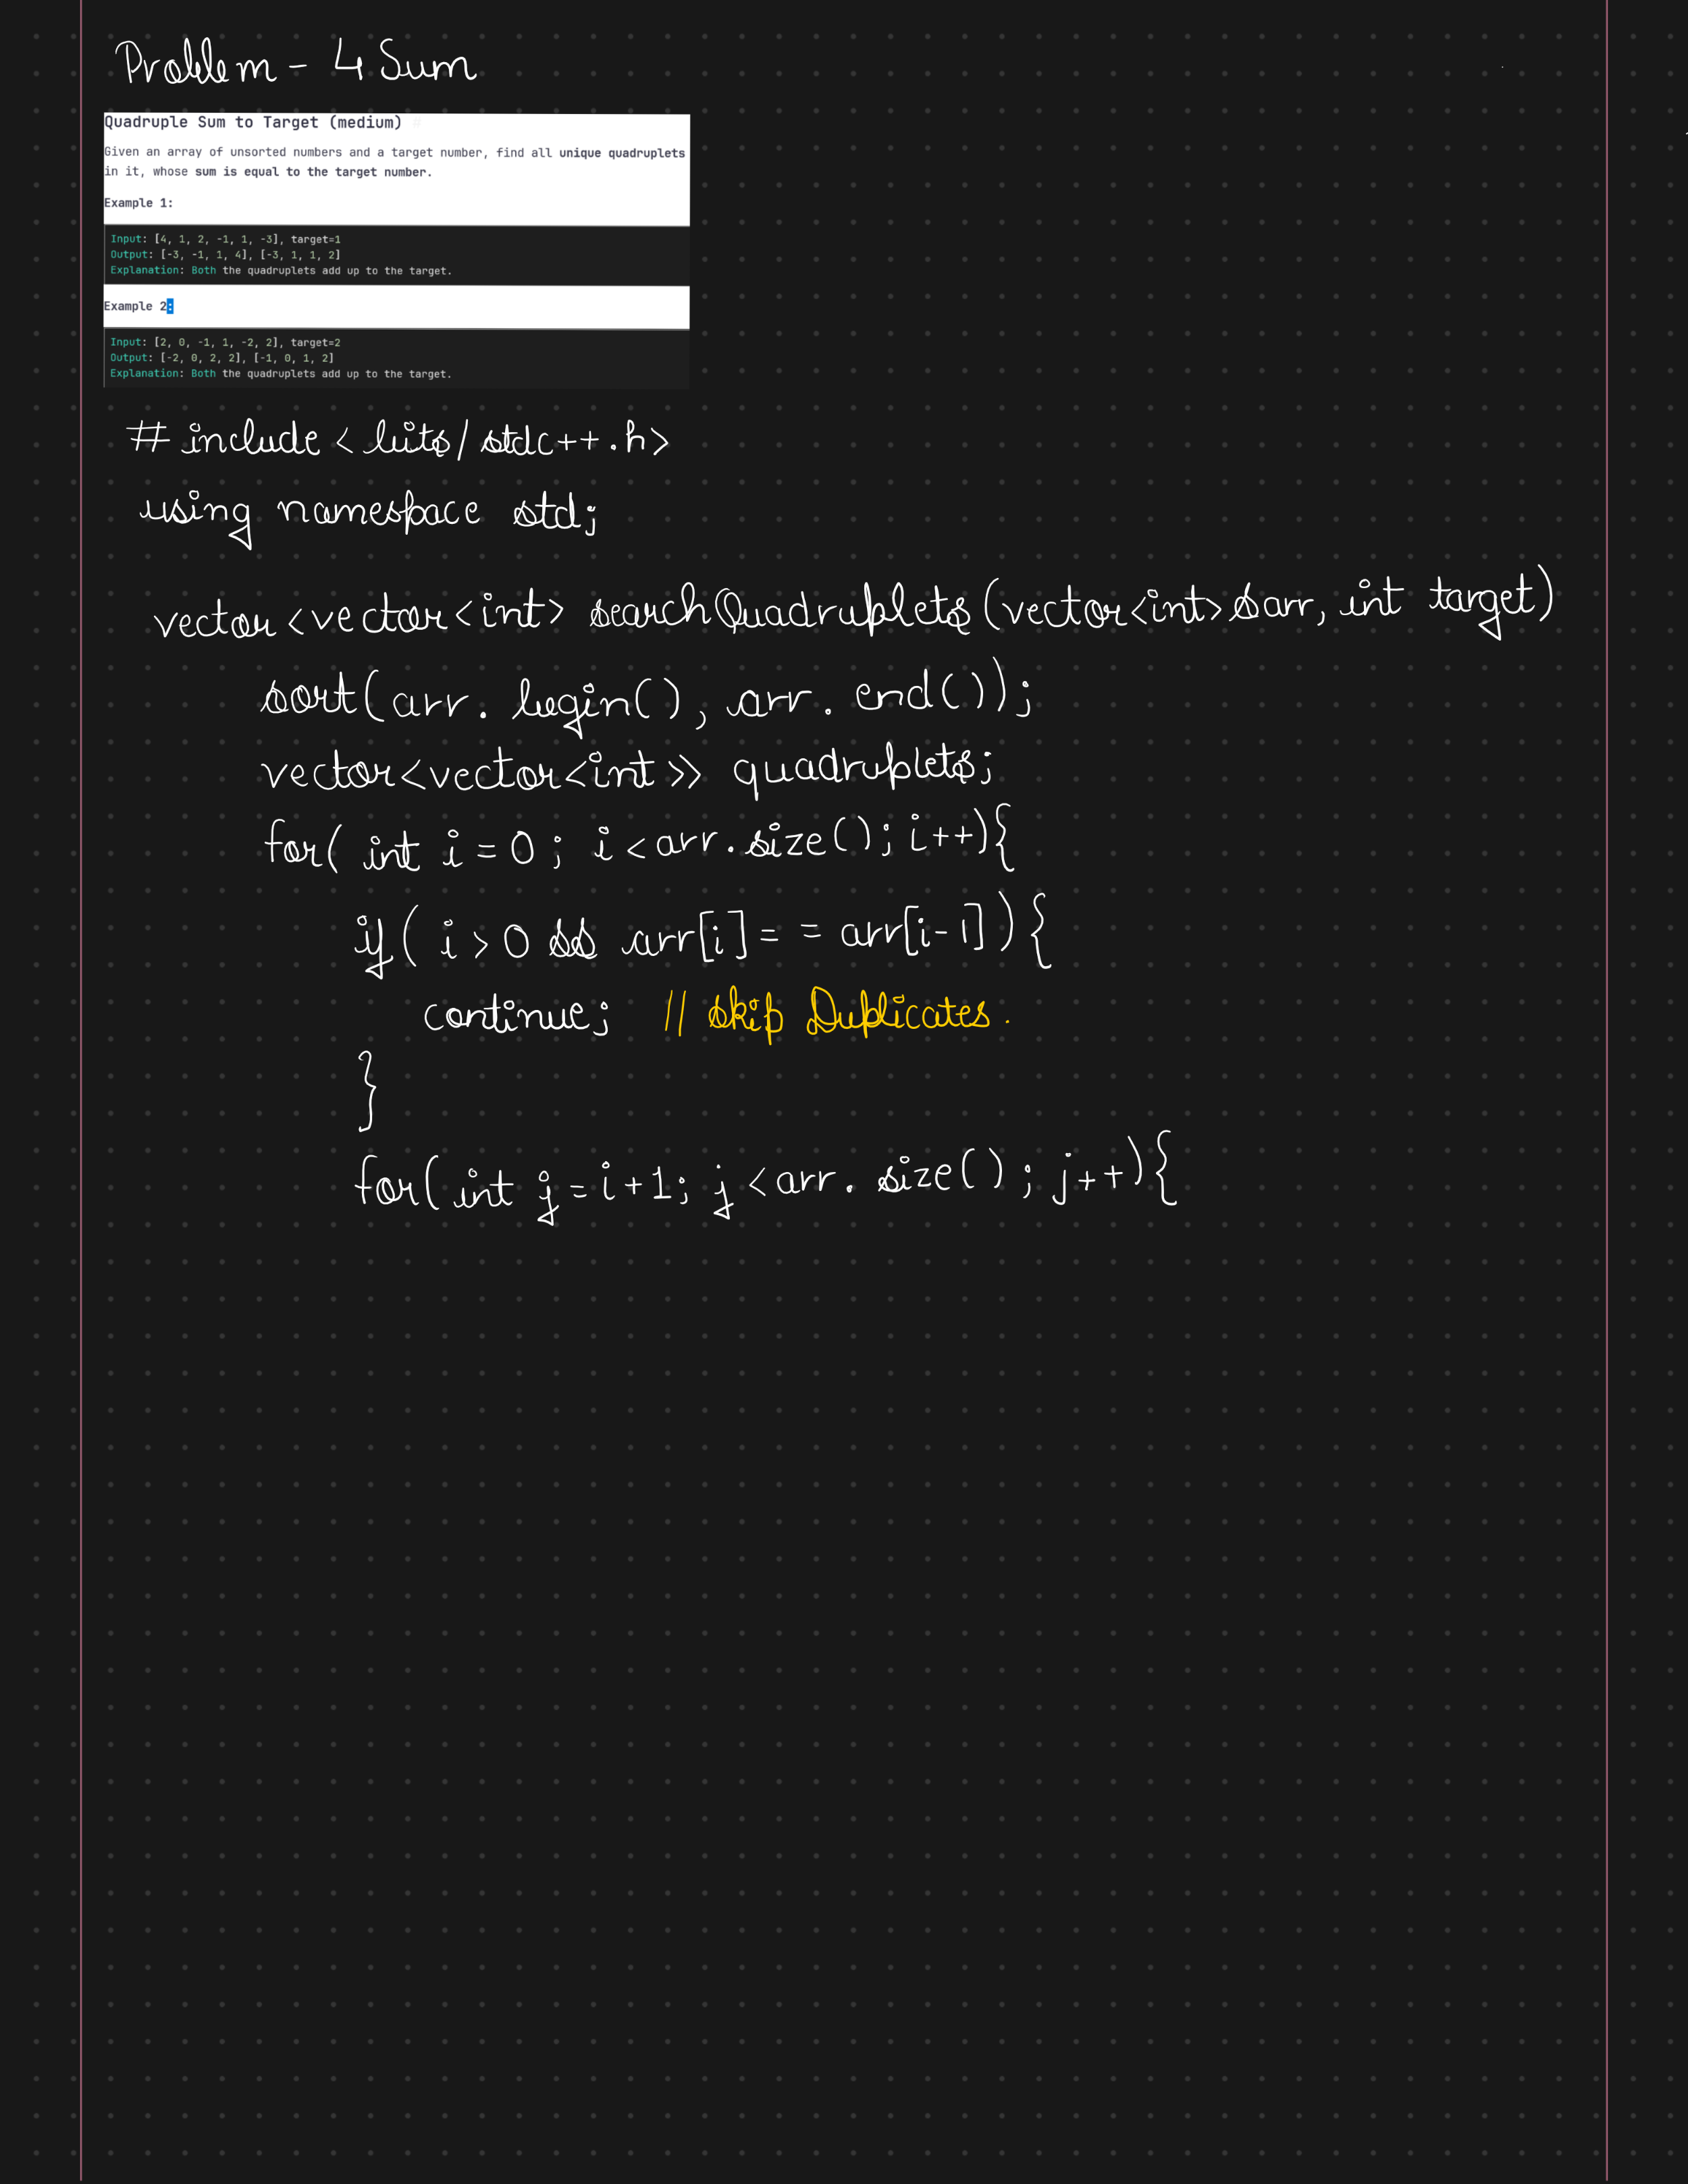 Problem - 4 Sum
Quadruple Sum to Target (medium)
Given an array of unsorted numbers and a target number, find all unique quadruplets
in it, whose sum is equal to the target number.
Example 1:
Input: [4, 1, 2, -1, 1, -3], target=1
Output: [-3, -1, 1, 4], [-3, 1, 1, 2]
Explanation: Both the quadruplets add up to the target.
Example 2:
Input: [2, 0, -1, 1, -2, 2], target=2
Output: [-2, 0, 2, 2], [-1, 0, 1, 2]
Explanation: Both the quadruplets add up to the target.
# include < bits/ stdc++.h>
using namespace std;
vector <vector <int> searchQuadruplets (vector<int> &arr, int target)
sort(arr. begin(), arr. end());
vector<vector<int >> quadruplets;
for( int i = 0 ; i < arr. size(); i++){
if( i > 0 && arr[i] = = arr[i-1]){
continue; // skip Duplicates.
}
for( int j = i+1; j < arr. size(); j++){